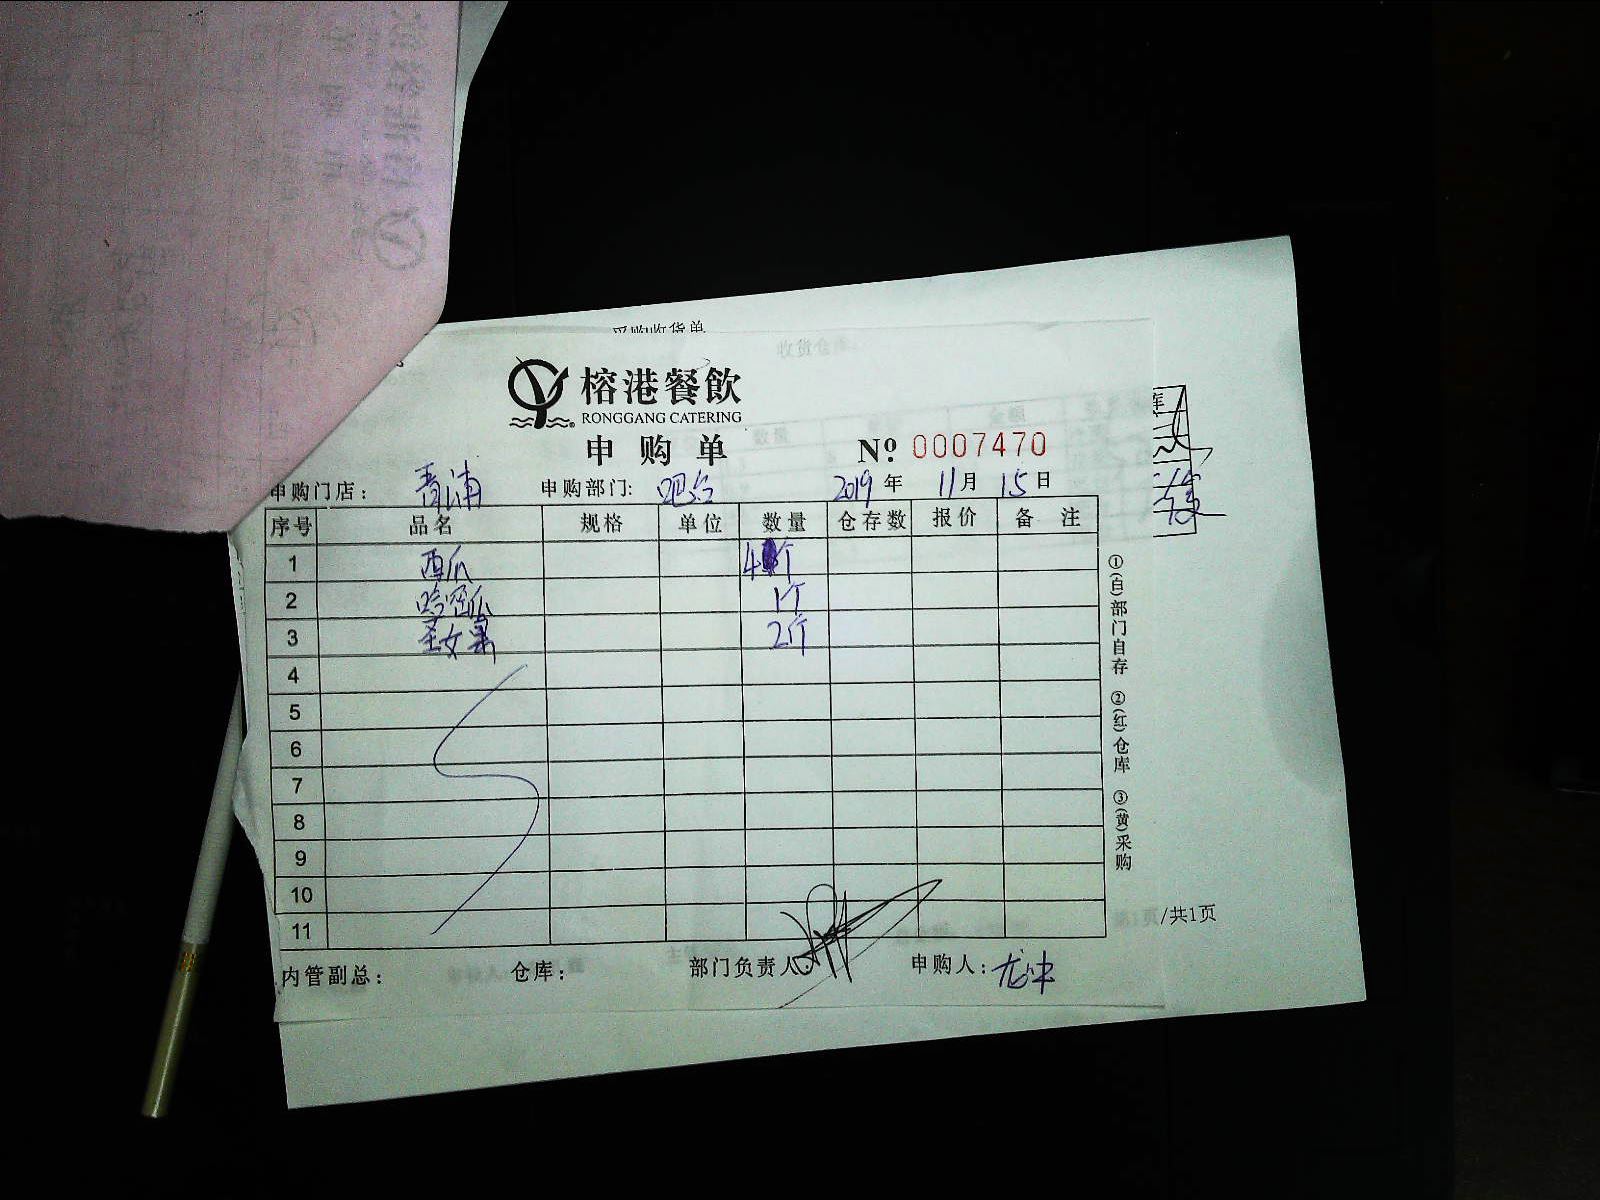 采购收货单
榕港餐飲
RONGGANG CATERING
申购单
Nº 0007470
申购门店： 青浦 申购部门: 吧台 2019 年 11 月 15 日
序号 品名 规格 单位 数量 仓存数 报价 备 注
1 西瓜 4个
2 哈密瓜 1个
3 圣女果 2斤
4
5
6
7
8
9
10
11
内管副总： 仓库： 部门负责人： 申购人：
①(白)部门自存 ②(红)仓库 ③(黄)采购
第1页/共1页